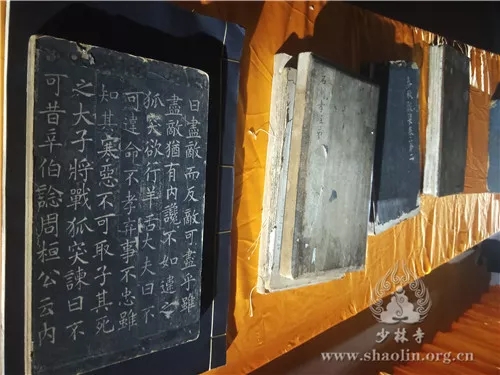 曰盡敵而反敵可盡乎雖
盡敵猶有內讒不如違之
狐突欲行羊舌大夫曰不
可違命不孝弃事不忠雖
知其寒惡不可取子其死
之大子將戰狐突諫曰不
可昔辛伯諗周桓公云內
少林寺
www.shaolin.org.cn